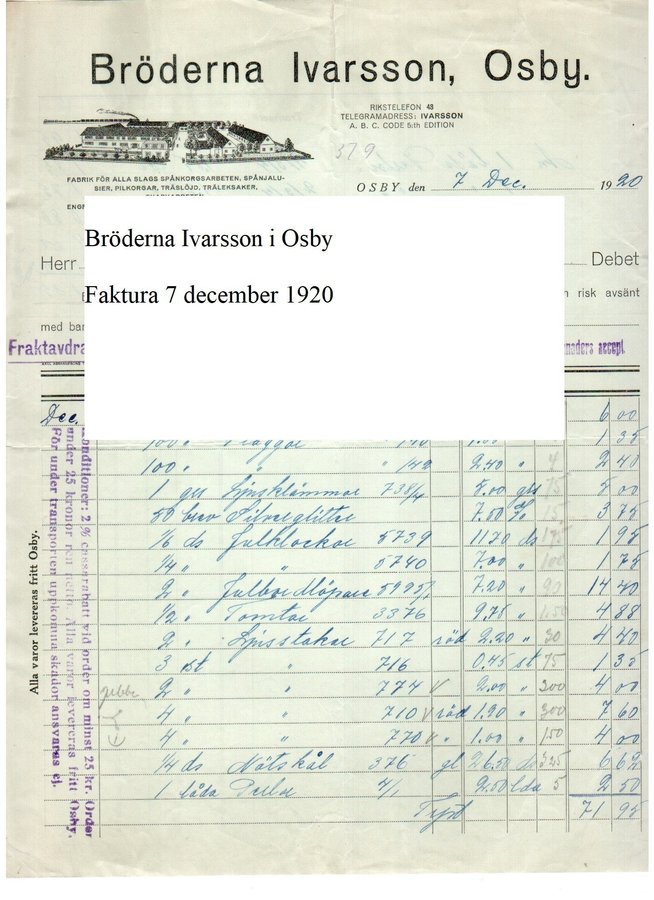 Bröderna Ivarsson, Osby.
RIKSTELEFON 43
TELEGRAMADRESS: IVARSSON
A. B. C. CODE 5:th EDITION
579
FABRIK FÖR ALLA SLAGS SPÅNKORGSARBETEN, SPÅNJALU-
SIER, PILKORGAR, TRÄSLÖJD, TRÄLEKSAKER,
OSBY den 7 Dec. 1920
Bröderna Ivarsson i Osby
Faktura 7 december 1920
Herr Debet
risk avsänt
med
Fraktavdra accept.
Dec. 6 00
100 " 140 1.35
100 " " " 142 2.40 " 4 2 40
1 grs Ljusklämmor 738/4 8.00 grs 75 8 00
50 brev Silverglitter 7.50 % 15 3 75
1/6 ds Julklockor 5739 1170 ds 175 1 95
1/4 " " 5740 7.00 " 100 1 75
2 " 7.20 " 90 14 40
1/2 " Tomtar 3376 9.75 " 150 4 88
2 " Ljusstakar 717 röd 2.20 " 30 4 40
3 st " 716 0.45 st 75 1 35
2 " " 774 V 2.00 " 300 4 00
4 " " 710 V röd 1.90 " 300 7 60
4 " " 770 V " 1.00 " 150 4 00
1/4 ds Nötskål 376 gl 26.50 ds 325 6 62
1 låda 4/1 2.50 lda 5 2 50
71 95
Konditioner: 2 % cassarabatt vid order om minst 25 kr. Order
under 25 kronor ren netto. Alla varor levereras fritt Osby.
För under transporten uppkomna skador ansvaras ej.
Alla varor levereras fritt Osby.